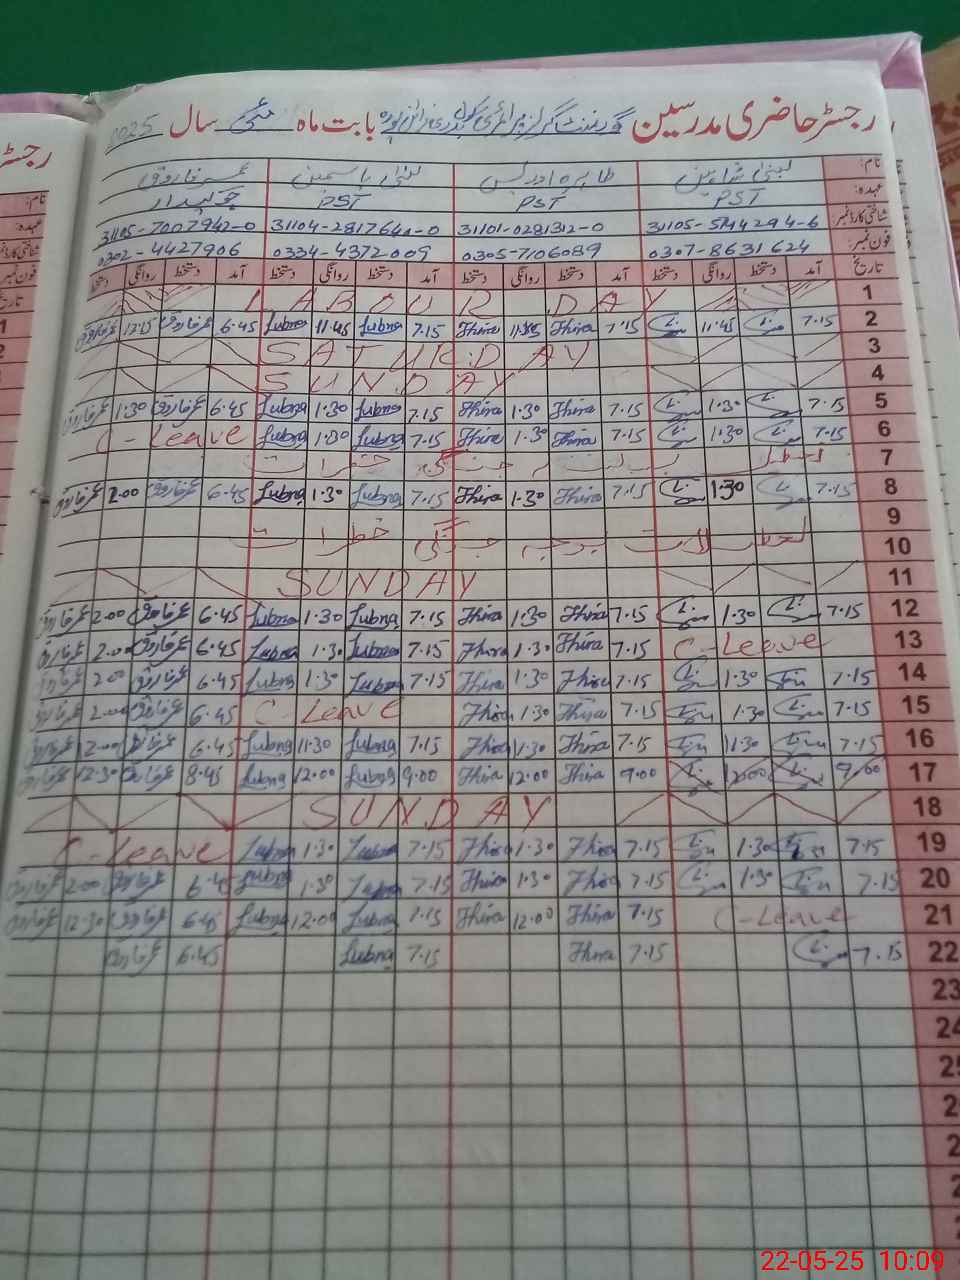 رجسٹر حاضری مدرسین گورنمنٹ گرلز پرائمری سکول بابت ماہ مئی سال 2025
نام: لبنیٰ شاہین طاہرہ ادریس لبنیٰ یاسمین عمر فاروق
عہدہ: PST PST PST چوکیدار
شناختی کارڈ نمبر: 31101-0281312-0 31104-2817641-0 31105-7007942-0
فون نمبر: 0307-8631624 0305-7106089 0334-4372009 0302-4427906
تاریخ آمد دستخط روانگی دستخط آمد دستخط روانگی دستخط آمد دستخط روانگی دستخط آمد دستخط روانگی دستخط
1 LABOUR DAY
2 7.15 11.45 7.15 Thira 11.45 Thira 7.15 Lubna 11.45 Lubna 6.45 عمرفاروق 12.15 عمرفاروق
3 SATURDAY
4 SUNDAY
5 7.15 1.30 7.15 Thira 1.30 Thira 7.15 Lubna 1.30 Lubna 6.45 عمرفاروق 1.30 عمرفاروق
6 7.15 1.30 7.15 Thira 1.30 Thira 7.15 Lubna 1.30 Lubna C-Leave
7 تعطیل جنگی خطرات
8 7.15 1.30 7.15 Thira 1.30 Thira 7.15 Lubna 1.30 Lubna 6.45 عمرفاروق 2.00 عمرفاروق
9
10 تعطیلات بوجہ جنگی خطرات
11 SUNDAY
12 7.15 1.30 7.15 Thira 1.30 Thira 7.15 Lubna 1.30 Lubna 6.45 عمرفاروق 2.00 عمرفاروق
13 C-Leave 7.15 Thira 1.30 Thira 7.15 Lubna 1.30 Lubna 6.45 عمرفاروق 2.00 عمرفاروق
14 7.15 1.30 7.15 Thira 1.30 Thira 7.15 Lubna 1.30 Lubna 6.45 عمرفاروق 2.00 عمرفاروق
15 7.15 1.30 7.15 Thira 1.30 Thira C-Leave 6.45 عمرفاروق 2.00 عمرفاروق
16 7.15 11.30 7.15 Thira 1.30 Thira 7.15 Lubna 11.30 Lubna 6.45 عمرفاروق 2.00 عمرفاروق
17 9.00 12.00 9.00 Thira 12.00 Thira 9.00 Lubna 12.00 Lubna 8.45 عمرفاروق 12.30 عمرفاروق
18 SUNDAY
19 7.15 1.30 7.15 Thira 1.30 Thira 7.15 Lubna 1.30 Lubna C-Leave
20 7.15 1.30 7.15 Thira 1.30 Thira 7.15 Lubna 1.30 Lubna 6.45 عمرفاروق 2.00 عمرفاروق
21 C-Leave 7.15 Thira 12.00 Thira 7.15 Lubna 12.00 Lubna 6.45 عمرفاروق 12.30 عمرفاروق
22 7.15 7.15 Thira 7.15 Lubna 6.45 عمرفاروق
23
24
25
22-05-25 10:09